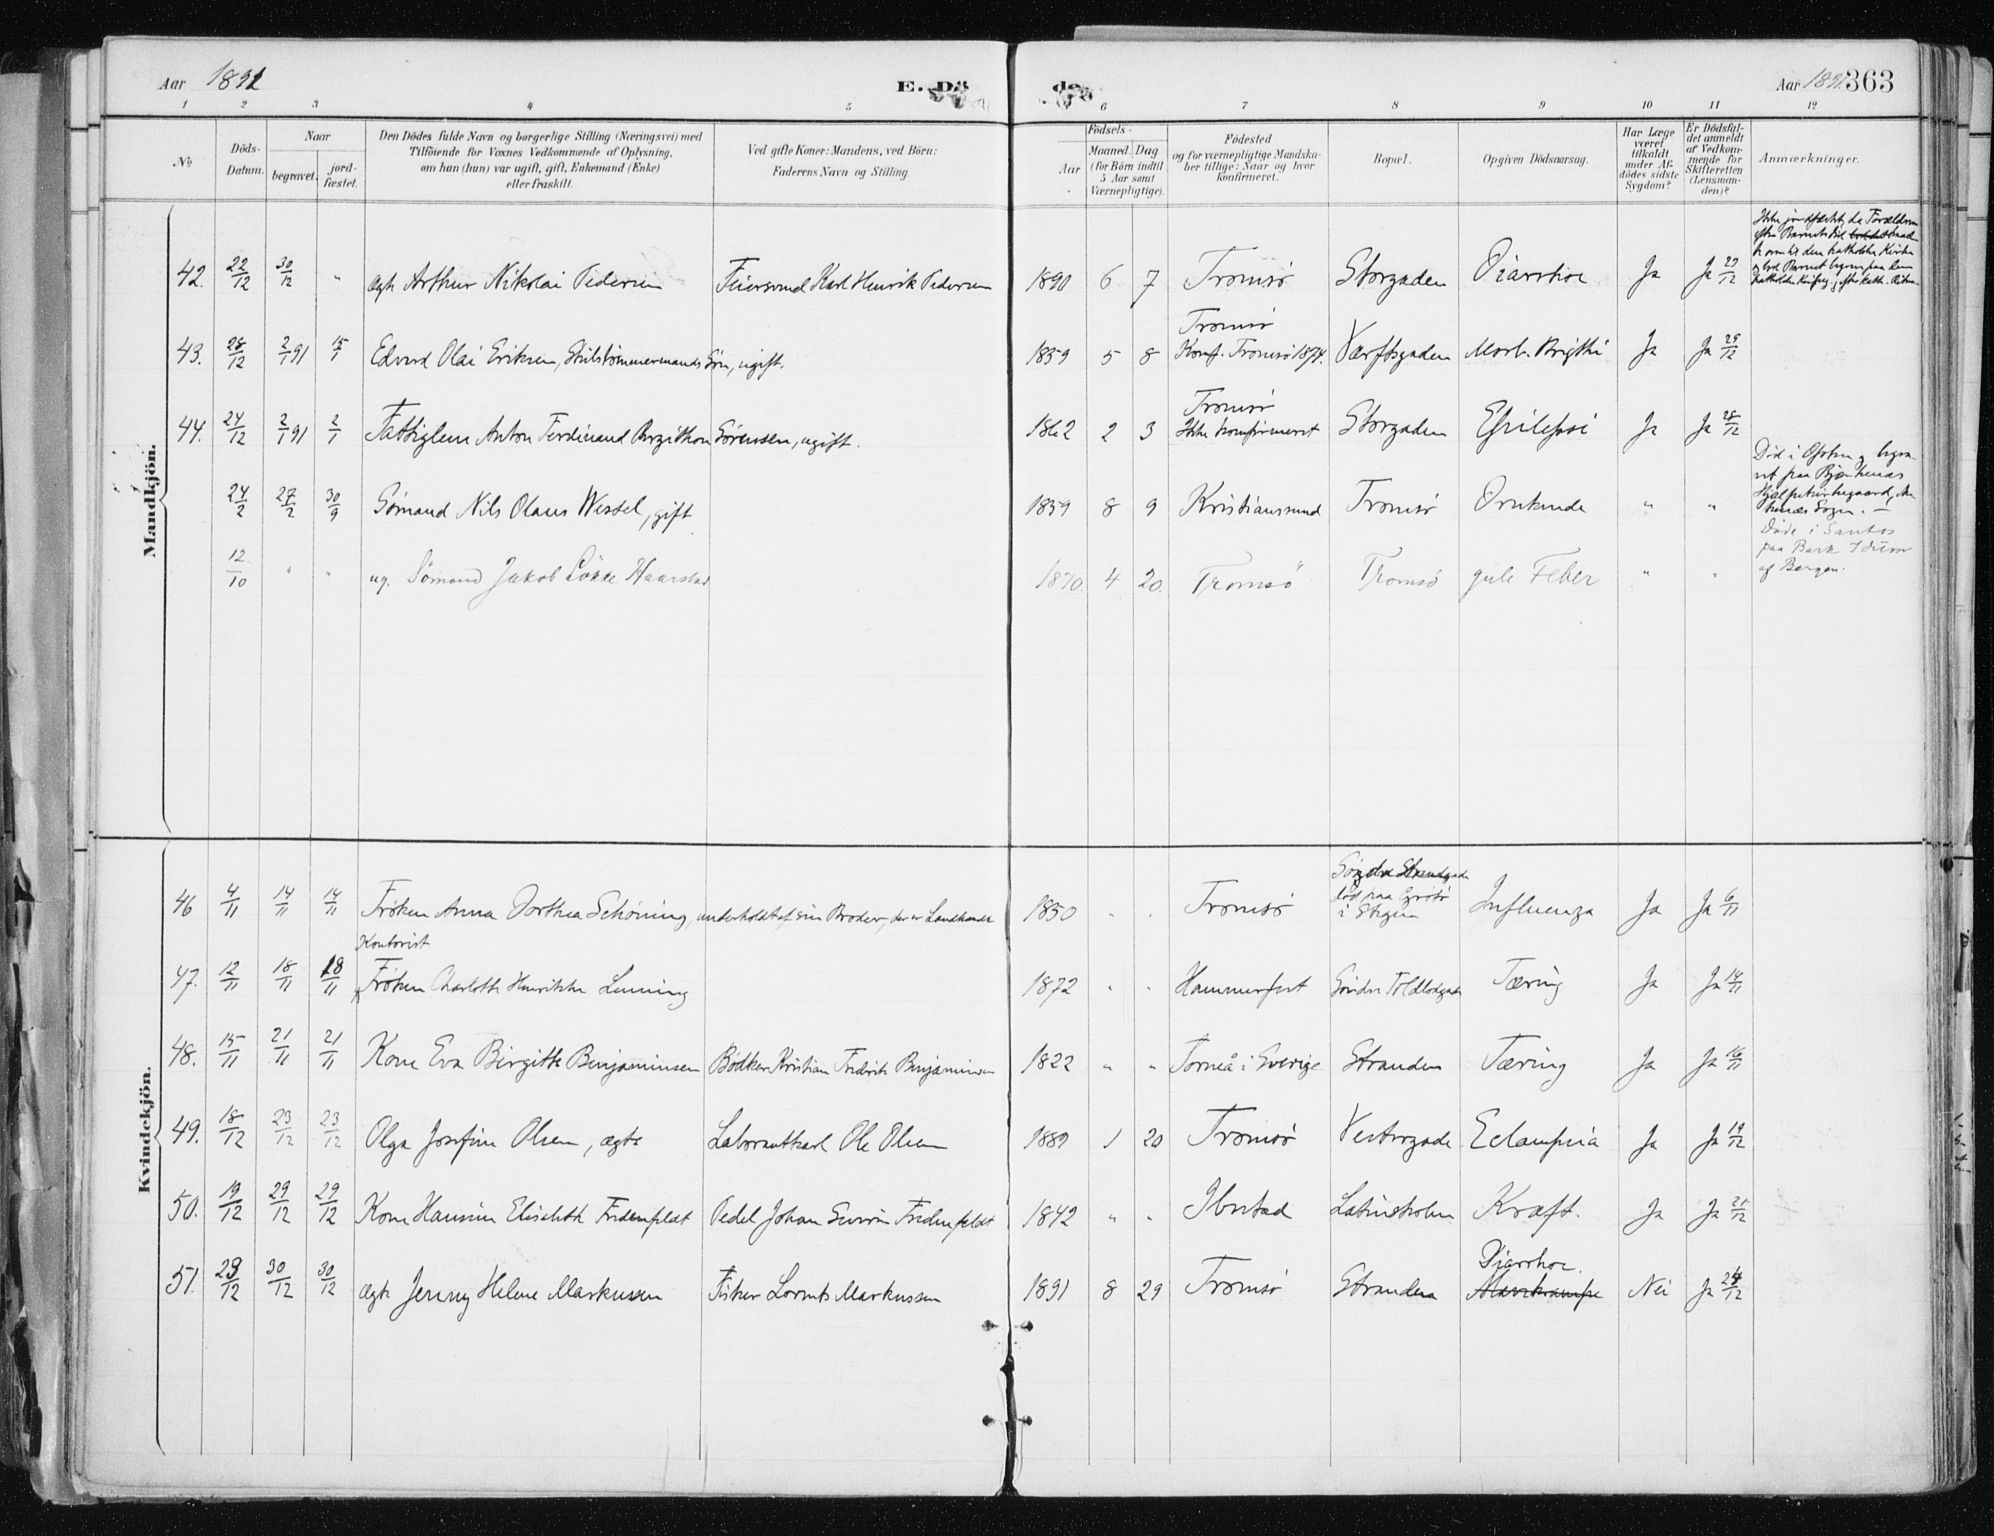 Aar 1891 E. Dö
de. Aar 1891. 363
1 2 3 4 5 6 7 8 9 10 11 12
No
Döds-Datum.
Naar
begravet.
jord-fæstet.
Den Dödes fulde Navn og borgerlige Stilling (Næringsvei) med
Tilföiende for Voxnes Vedkommende af Oplysning,
om han (hun) var ugift, gift, Enkemand (Enke)
eller fraskilt.
Ved gifte Koner: Mandens, ved Börn:
Faderens Navn og Stilling.
Födsels-
Aar
Maaned. Dag
(for Börn indtil
5 Aar samt
Værnepligtige).
Födested
og for værnepligtige Mandska-
ber tillige: Naar og hvor
konfirmeret.
Bopæl.
Opgiven Dödsaarsag.
Har Læge
været
tilkaldt
under Af-
dödes sidste
Sygdom?
Er Dödsfal-
det anmeldt
af Vedkom-
mende for
Skifteretten
(Lensman-
den)?
Anmærkninger.
Mandkjön.
42. 22/12 30/12 " ægte Arthur Nikolai Pedersen Feiersvend Karl Henrik Pedersen 1890 6 7 Tromsö Storgaden Diarrhoe Ja Ja 29/12
43. 28/12 2/1 91 15/1 Edvard Olai Eriksen, Skibstömmermands Sön, ugift. 1859 5 8 Tromsö Konf. Tromsö 1874. Værftsgaden Morb. Brigthi Ja Ja 29/12
44. 24/12 2/1 91 2/1 Fattiglem Anton Ferdinand Bergithon Sörensen, ugift. 1862 2 3 Tromsö Ikke konfirmeret Storgaden Epilepsi Ja Ja 28/12
24/2 27/2 30/9 Sömand Nils Olaus Wessel, gift 1859 8 9 Kristianssund Tromsö Druknede " "
12/10 " " ug. Sömand Jakob Lökke Haarstad 1870. 4 20. Tromsö Tromsö gule Feber " " Döde i Santos
paa Bark Idum
af Bergen.
Kvindekjön.
46 4/11 14/11 14/11 Fröken Anna Dorthea Schöning, underholdt af sin Broder, der er Landhandl. 1850 " " Tromsö Influenza Ja Ja 6/11
Kontorist
47. 12/11 18/11 18/11 Fröken Charlotte Henrikke Lenning 1872 " " Hammerfest Söndre Toldbodgade Tæring Ja Ja 14/11
48. 15/11 21/11 21/11 Kone Eva Birgitte Benjaminsen Bödker Kristian Fredrik Benjaminsen 1822 " " Torneå i Sverige Stranden Tæring Ja Ja 16/11
49. 18/12 23/12 23/12 Olga Josefine Olsen, ægte Laborantkarl Ole Olsen 1889 1 20 Tromsö Vestregade Eclampsia Ja Ja 19/12
50. 19/12 29/12 29/12 Kone Hansine Elisabeth Fredenfeldt Pedel Johan Fredenfeldt 1842 " " Ibestad Latinskolen Kræft. Ja Ja 21/12
51. 23/12 30/12 30/12 ægte Jenny Helene Markussen Fisker Lorents Markussen 1891 8 29 Tromsö Stranden Diarrhoe. Nei Ja 24/12